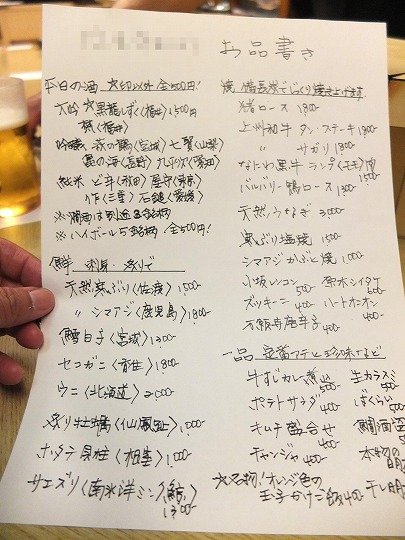 お品書き
平日の酒 大印以外 全500円!
大吟 大黒龍しずく〈福井〉1,500円
梵〈福井〉
〈宮城〉七賢〈山梨〉
〈長野〉〈愛知〉
純米 ど辛〈秋田〉屋守〈東京〉
作〈三重〉石鎚〈愛媛〉
※ハイボール5銘柄 全500円!
鮮 刺身・炙りで
天然寒ぶり〈佐渡〉1,500-
〃 シマアジ〈鹿児島〉1,800-
鱈白子〈宮城〉1,300-
セコガニ〈香住〉1,800-
ウニ〈北海道〉2,000-
炙り牡蠣〈仙鳳趾〉1,000-
ホタテ貝柱〈相生〉1,000-
サエズリ〈南氷洋ミンク鯨〉1,300-
焼 備長炭でじっくり焼き上げます。
猪ロース 1,800-
上州和牛 タン・ステーキ 1,800-
〃 サガリ 1,800-
なにわ黒牛 ランプ(モモ)肉 1,500-
バルバリー鴨ロース 1,300-
天然うなぎ 3,000-
寒ぶり塩焼 1,500-
シマアジかぶと焼 1,000-
小坂レンコン 500- 原木シイタケ 600-
ズッキーニ 400- ハートオニオン 400-
万願寺唐辛子 400-
一品 定番アテと珍味など
牛すじカレー煮 500- 生カラスミ
ポテトサラダ 400- ばくらい 500-
キムチ盛合せ 400- 鯛酒盗
チャンジャ 400- 本物の
大名物!オレンジ色の
玉子かけご飯 400-